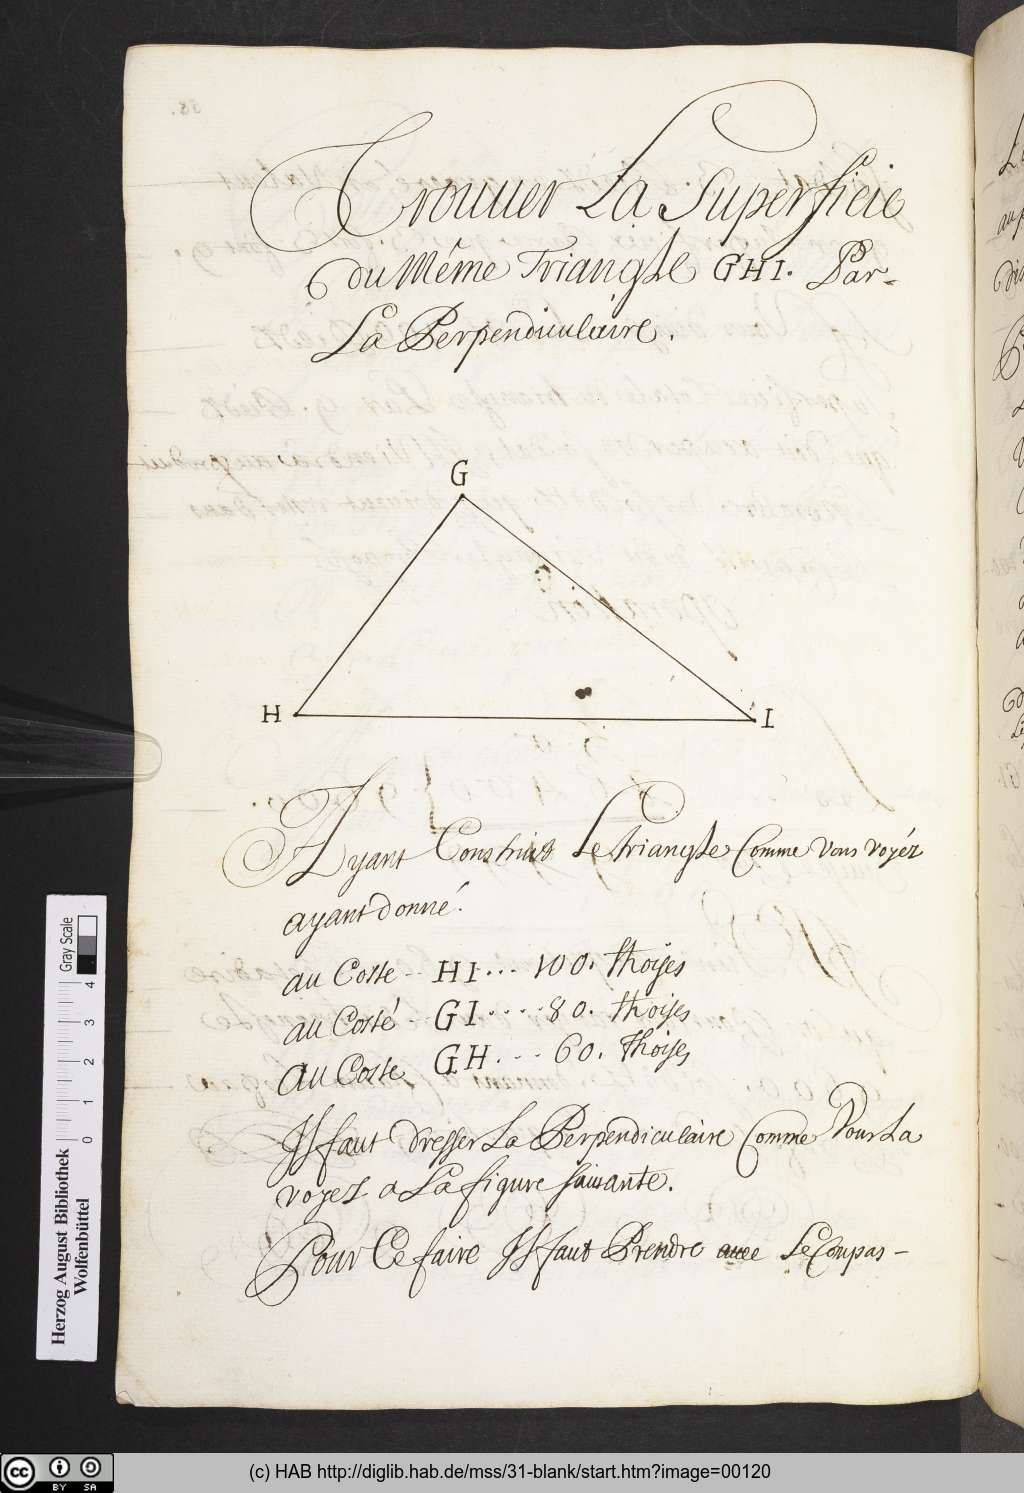 Trouuer La Superficie
du Même Triangle GHI. Par-
La Perpendiculaire.
G
H
I
Ayant Construit Le triangle Comme Vous voyéz
ayant donné.
au Coste -- HI... 100. thoises
au Costé -- GI.... 80. thoises
au Coste GH... 60. thoises
Il faut Dresser La Perpendiculaire Comme Vous La
voyez a La figure suiuante.
Pour Ce faire Il faut Prendre auec Le Compas -
Gray Scale
0 1 2 3 4
Herzog August Bibliothek
Wolfenbüttel
cc BY SA
(c) HAB http://diglib.hab.de/mss/31-blank/start.htm?image=00120